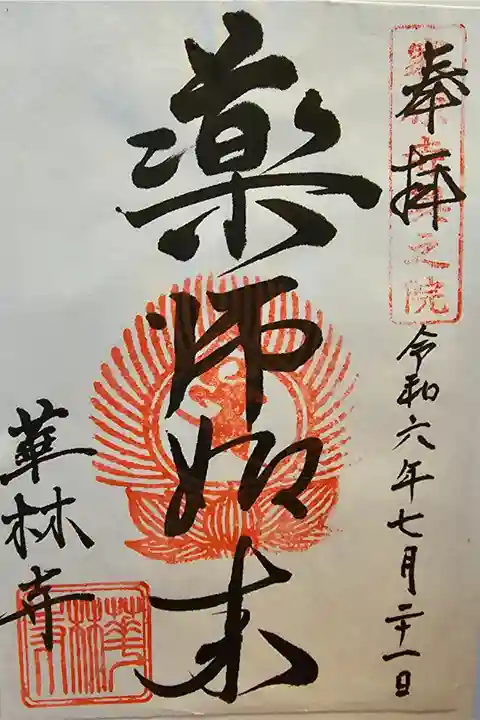 奉拝
令和六年七月二十一日
薬師如来
華林寺
華林寺